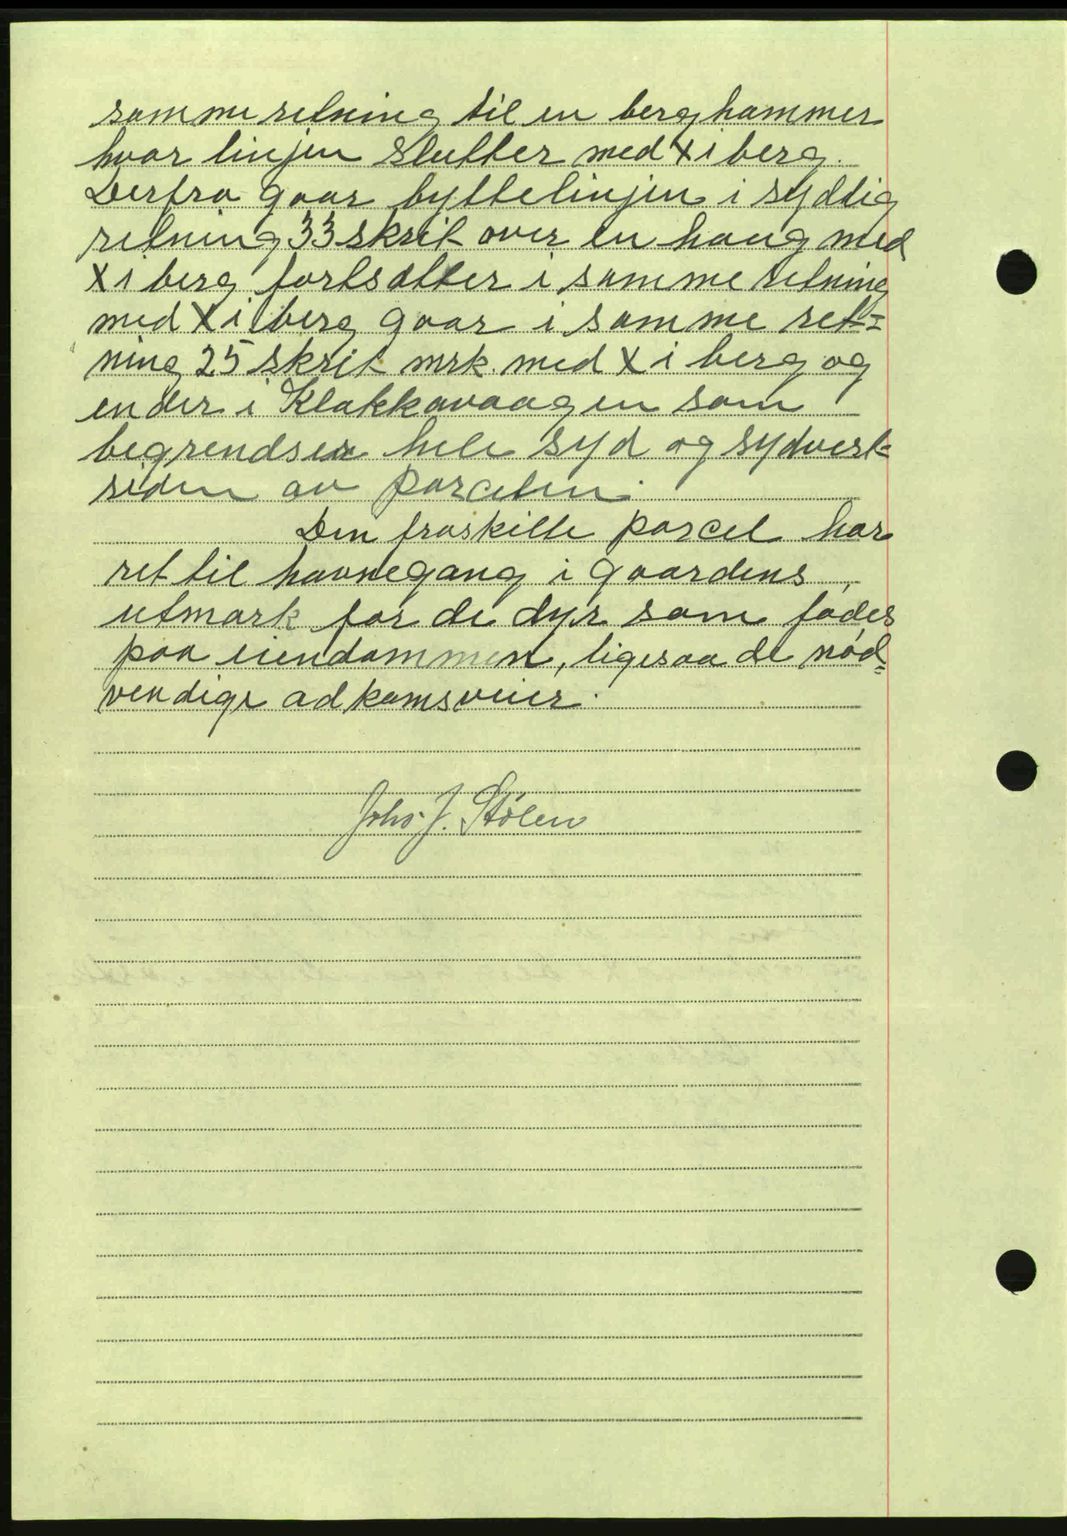 samme retning til en berghammer
hvor linjen slutter med X i berg.
Derfra gaar byttelinjen i sydlig
retning 33 skrit over en haug med
X i berg fortsatter i samme retning
med X i berg gaar i samme ret=
ning 25 skrit mrk. med X i berg og
ender i Klakkavaagen som
begrendser hele syd og sydvest
siden av parcelen.
Den fraskilte parcel har
ret til havnegang i gaardens
utmark for de dyr som fødes
paa eiendommen, ligesaa de nød=
vendige adkomsveier.
Johs. J. Stölen